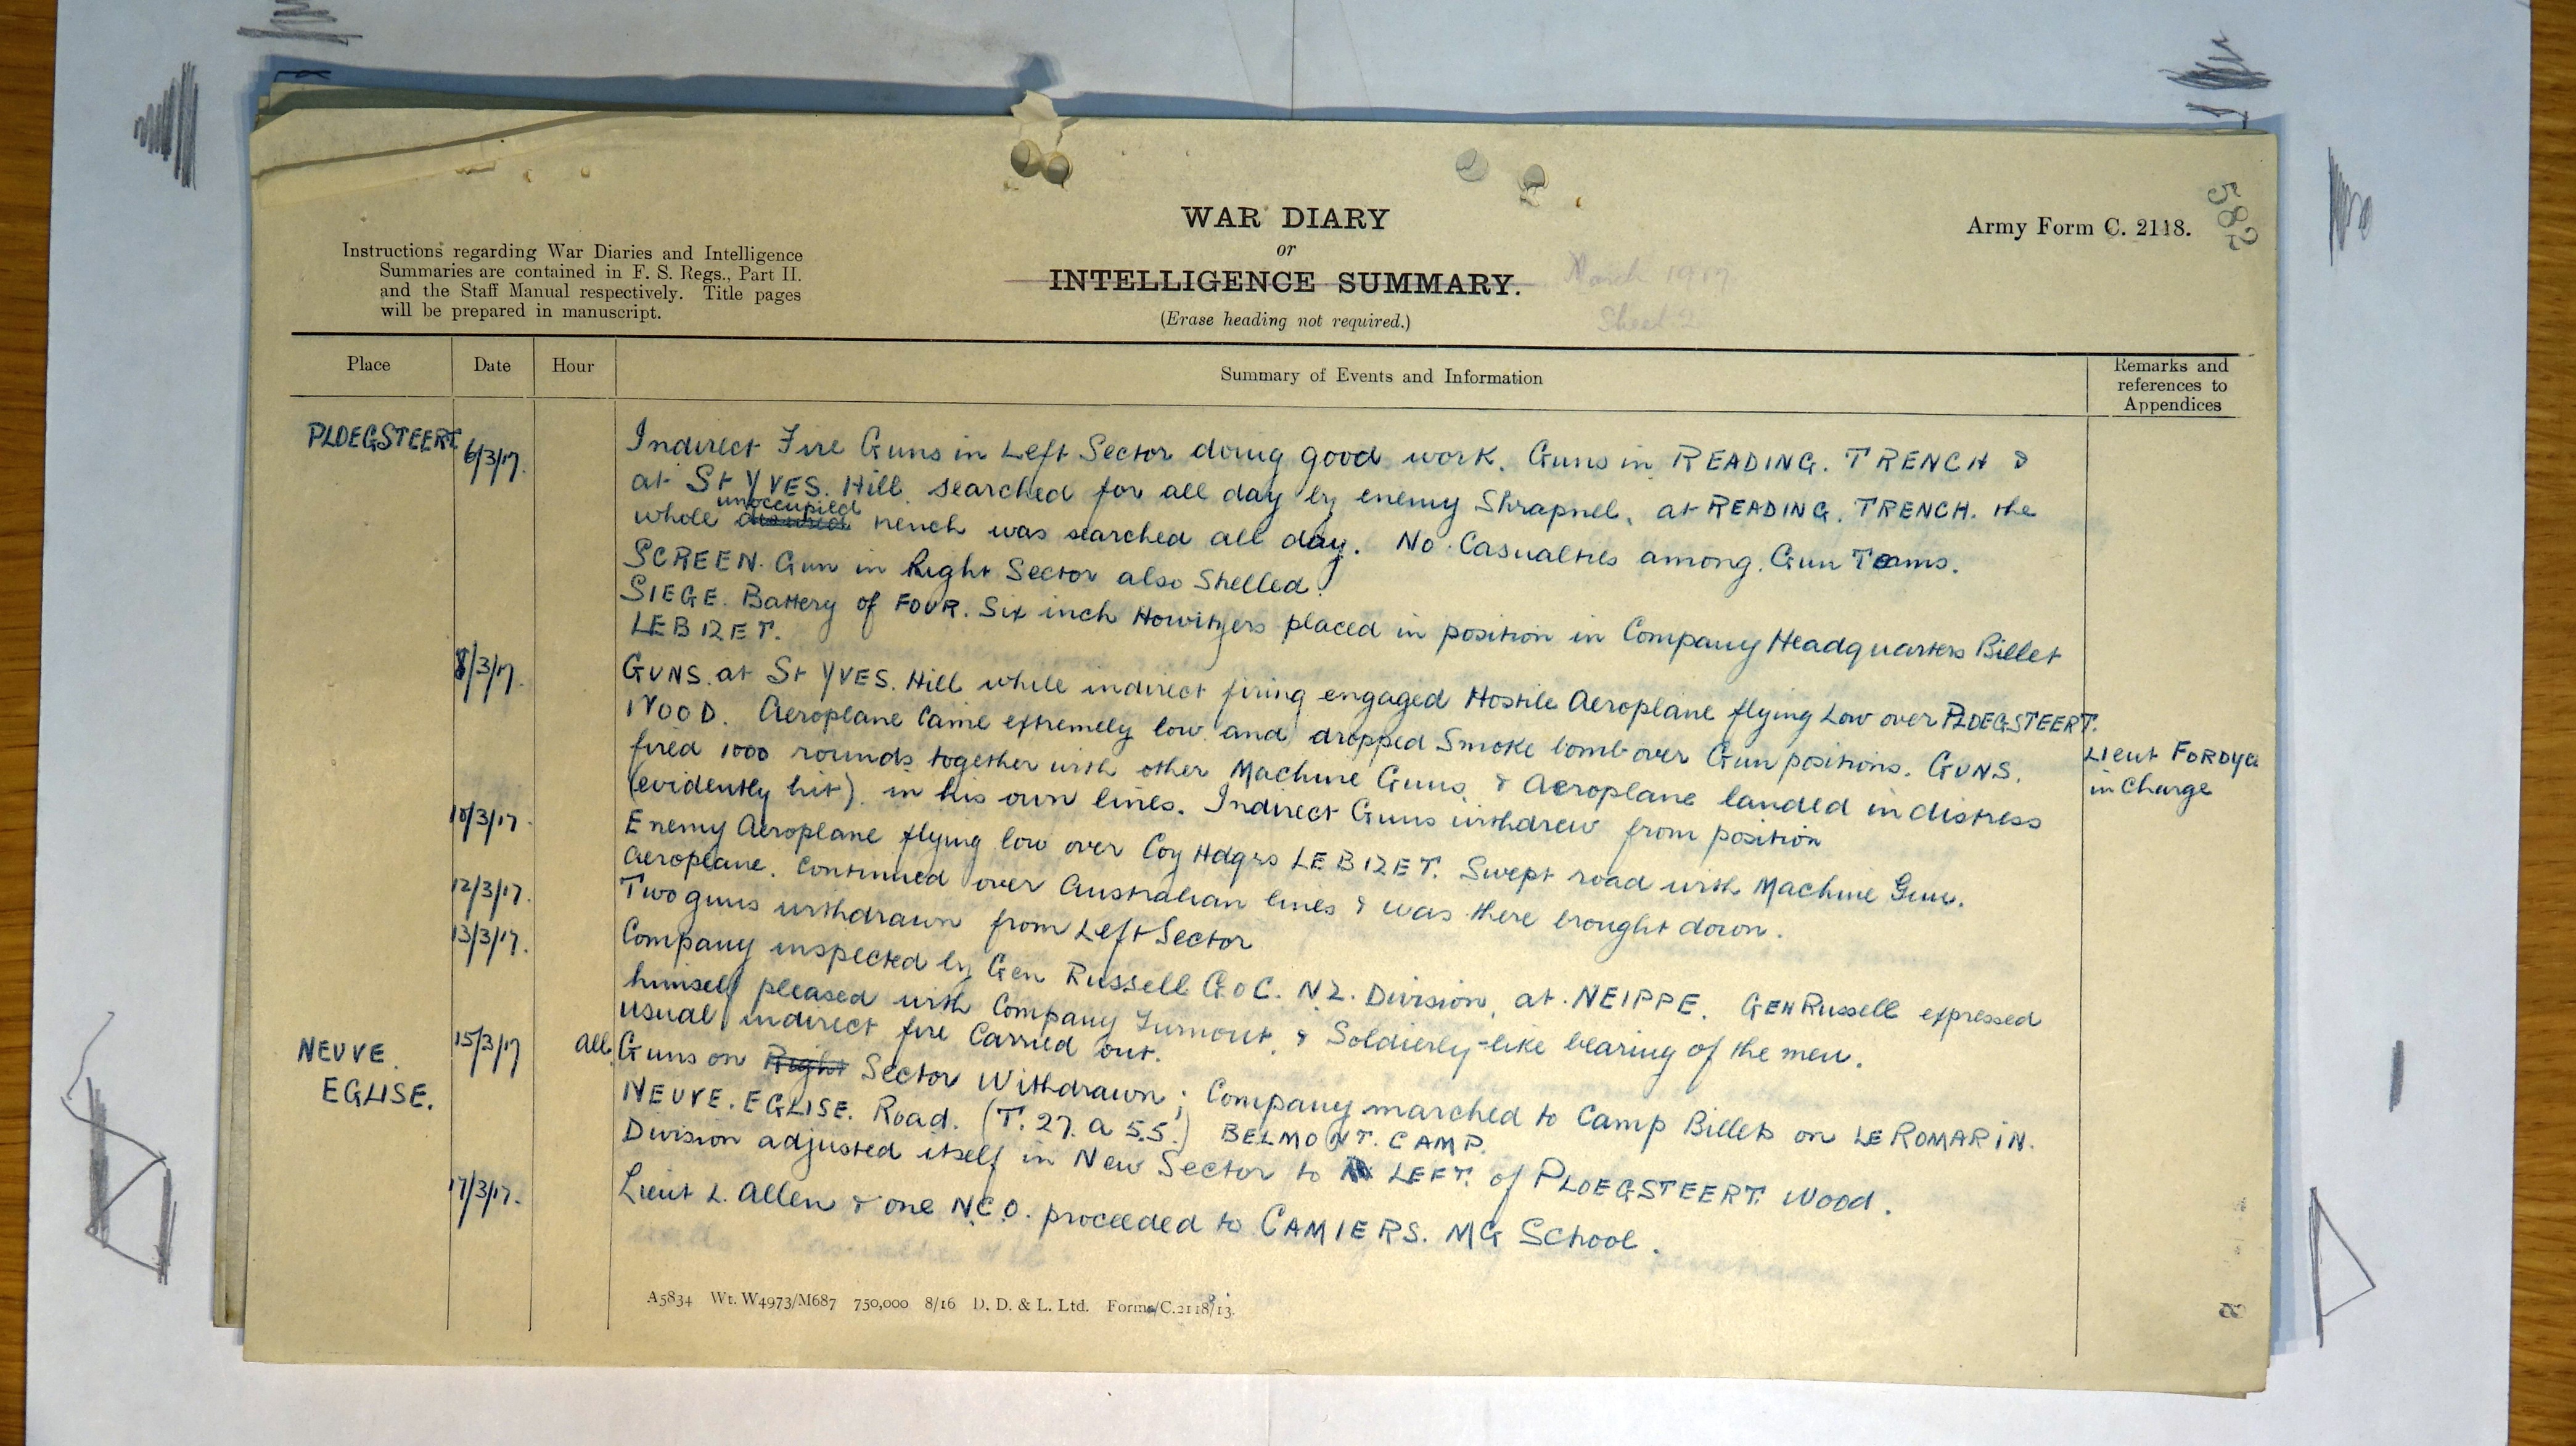 582
WAR DIARY
or
INTELLIGENCE SUMMARY.
(Erase heading not required.)
Army Form C. 2118.
March 1917
Sheet 2
Instructions regarding War Diaries and Intelligence
Summaries are contained in F. S. Regs., Part II.
and the Staff Manual respectively. Title pages
will be prepared in manuscript.
Place Date Hour Summary of Events and Information Remarks and references to Appendices
PLOEGSTEERT 6/3/17. Indirect Fire Guns in Left Sector doing good work. Guns in READING. TRENCH &
at St YVES. Hill. searched for all day by enemy Shrapnel, at READING. TRENCH. the
whole unoccupied trench was searched all day. No. Casualties among. Gun Teams.
SCREEN. Gun in Right Sector also Shelled.
SIEGE. Battery of FOUR. Six inch Howitzers placed in position in Company Headquarters Billet
LE BIZET.
8/3/17. GUNS. at St YVES. Hill while indirect firing engaged Hostile Aeroplane flying Low over PLOEGSTEERT.
WOOD. Aeroplane came extremely low and dropped Smoke bomb over Gun positions. GUNS.
fired 1000 rounds together with other Machine Guns, & Aeroplane landed in distress
(evidently hit). in his own lines. Indirect Guns withdrew from position
Lieut FORDYCE
in Charge
10/3/17. Enemy Aeroplane flying low over Coy Hdqrs LE BIZET. Swept road with Machine Gun.
Aeroplane. Continued over Australian lines & was there brought down.
12/3/17. Two guns withdrawn from Left Sector
13/3/17. Company inspected by Gen Russell G.O.C. N.Z. Division, at NEIPPE. GEN Russell expressed
himself pleased with Company Turnout, & Soldierly-like bearing of the men.
usual indirect fire Carried out.
NEUVE.
EGLISE.
15/3/17 all. Guns on Right Sector Withdrawn; Company marched to Camp Billets on LE ROMARIN.
NEUVE. EGLISE. Road. (T. 27. a 5.5.) BELMONT. CAMP.
Division adjusted itself in New Sector to LEFT. of PLOEGSTEERT Wood.
17/3/17. Lieut L. Allen & one N.C.O. proceeded to CAMIERS. MG School.
A5834 Wt. W4973/M687 750,000 8/16 D. D. & L. Ltd. Forms/C.2118/13.